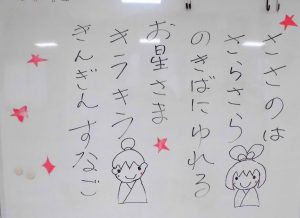 ささのは
さらさら
のきばにゆれる
お星さま
キラキラ
きんぎん すなご